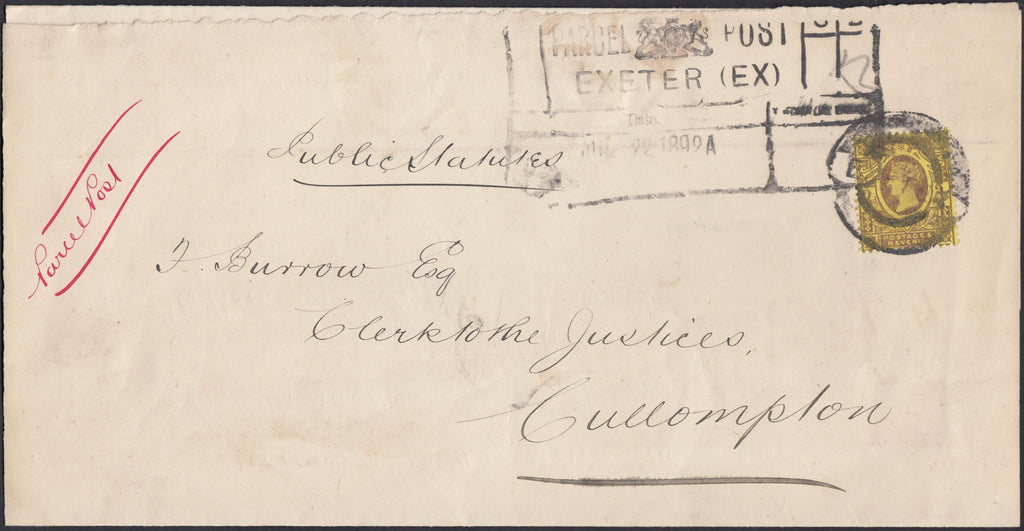 PARCEL POST
EXETER (EX)
Date
22 1892A
Public Statutes
Parcel Post
POSTAGE &
REVENUE
F. Burrow Esq
Clerk to the Justices,
Cullompton